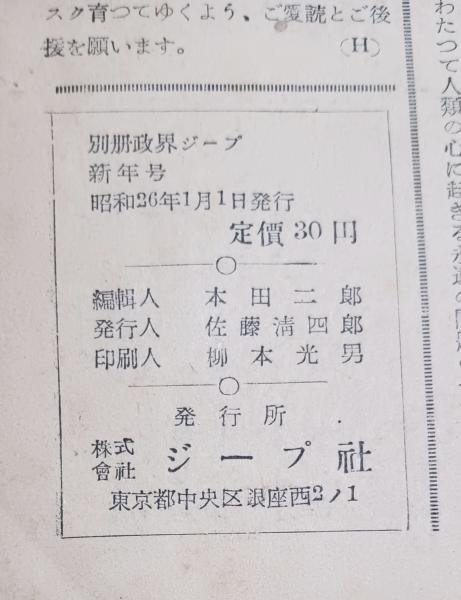 スク育つてゆくよう、ご愛読とご後
援を願います。　(H)
別册政界ジープ
新年号
昭和26年1月1日発行
定價30円
編輯人　本田二郎
発行人　佐藤清四郎
印刷人　柳本光男
発行所
株式會社　ジープ社
東京都中央区銀座西2ノ1
わたつて人類の心に起きる永遠の